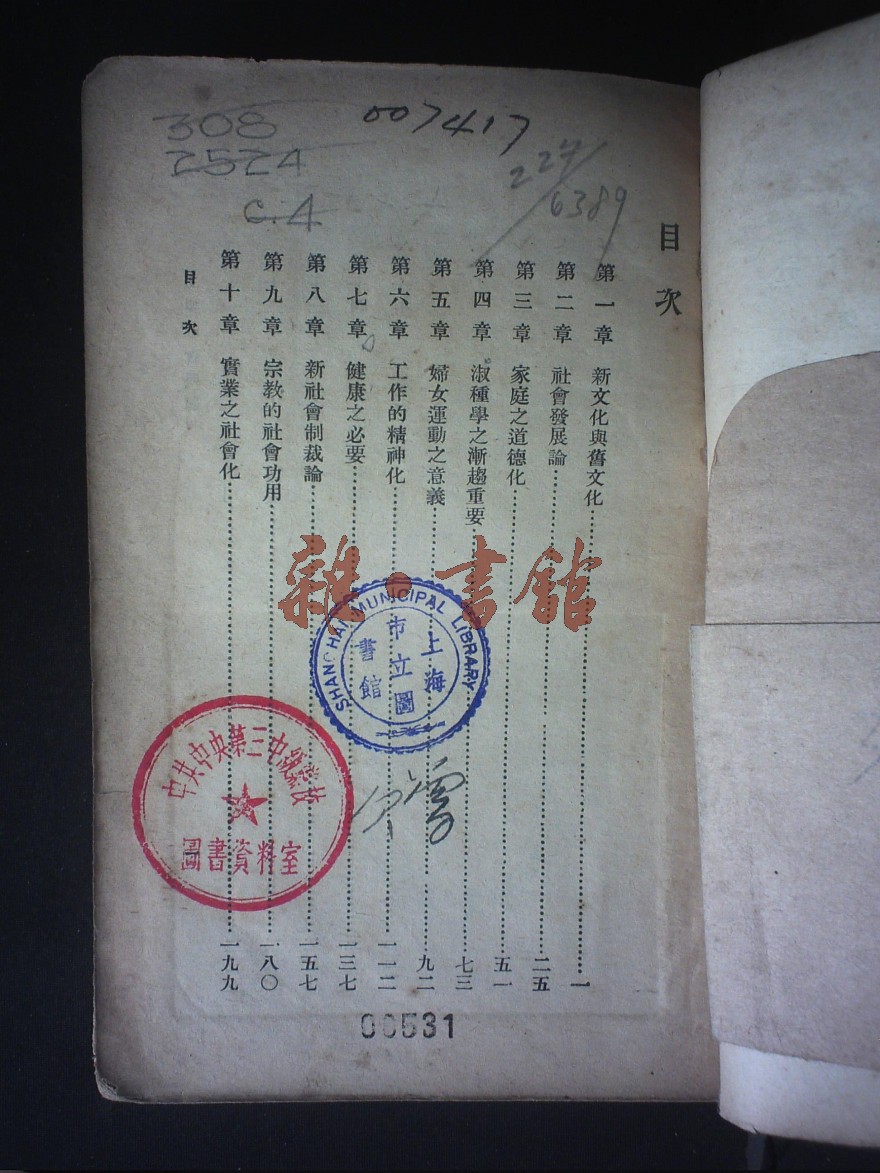 308
2524
C.4
007417
227/6389
目次
第一章 新文化與舊文化 一
第二章 社會發展論 二五
第三章 家庭之道德化 五一
第四章 淑種學之漸趨重要 七三
第五章 婦女運動之意義 九二
第六章 工作的精神化 一一二
第七章 健康之必要 一三七
第八章 新社會制裁論 一五七
第九章 宗教的社會功用 一八〇
第十章 實業之社會化 一九九
目次
雜·書館
SHANGHAI MUNICIPAL LIBRARY
上海
市立圖
書館
中共中央第三中級黨校
圖書資料室
00531